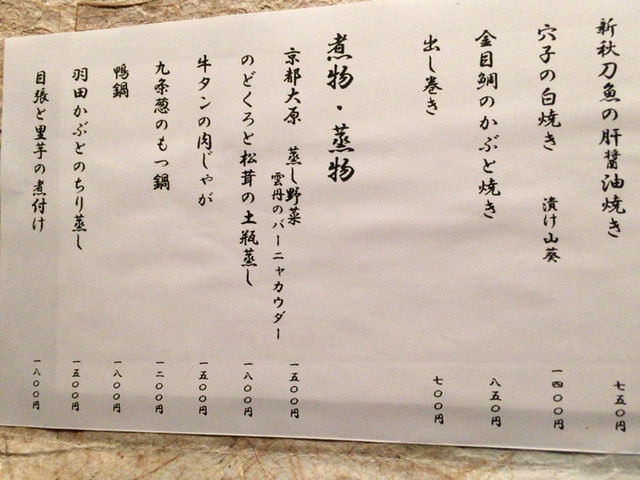 新秋刀魚の肝醤油焼き 七五〇円
穴子の白焼き 漬け山葵 一四〇〇円
金目鯛のかぶと焼き 八五〇円
出し巻き 七〇〇円
煮物・蒸物
京都大原 蒸し野菜 一五〇〇円
雲丹のバーニャカウダー
のどくろと松茸の土瓶蒸し 一八〇〇円
牛タンの肉じゃが 一五〇〇円
九条葱のもつ鍋 一二〇〇円
鴨鍋 一八〇〇円
羽田かぶとのちり蒸し 一五〇〇円
目張と里芋の煮付け 一八〇〇円